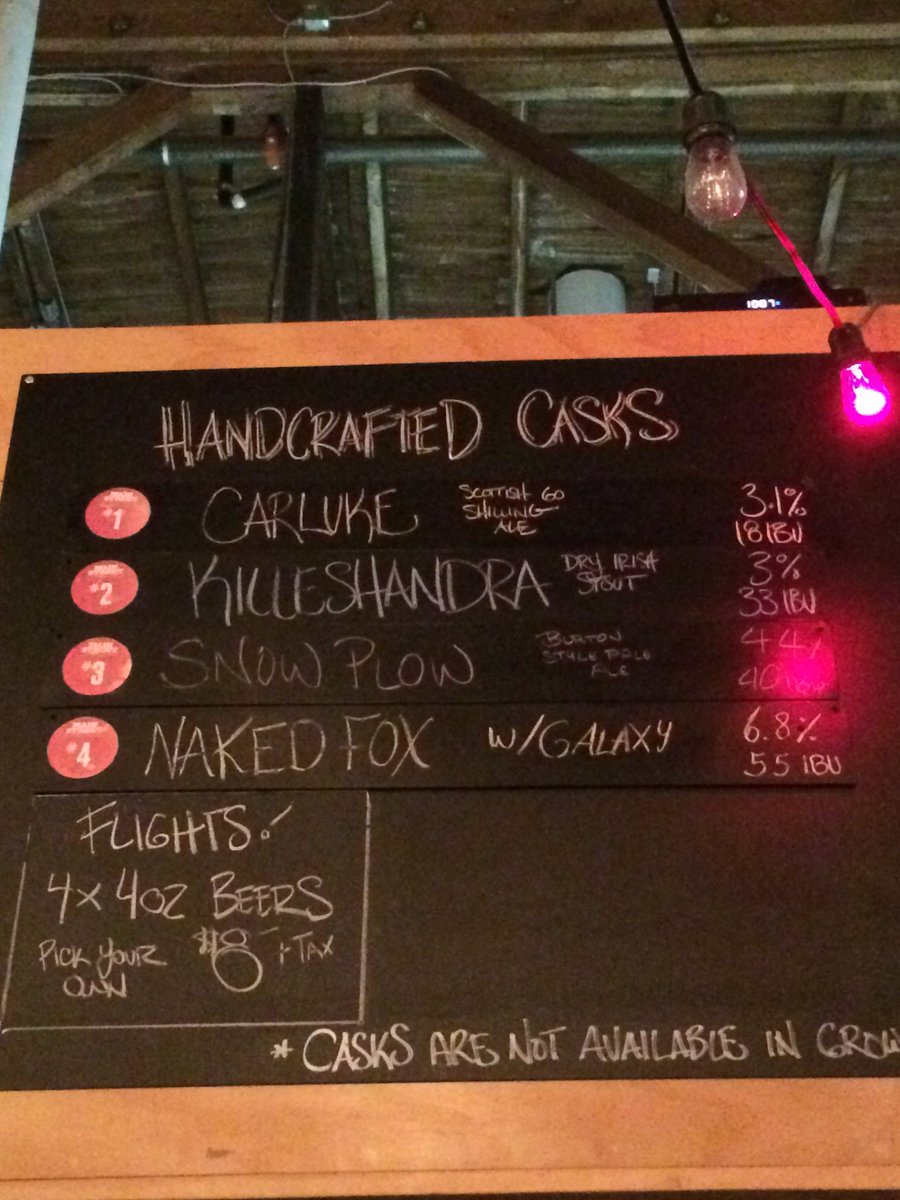 1007
HANDCRAFTED CASKS
#1 CARLUKE SCOTTISH 60 SHILLING ALE 3.1% 18 IBU
#2 KILLESHANDRA DRY IRISH STOUT 3% 33 IBU
#3 SNOW PLOW BURTON STYLE PALE ALE 4.4% 40 IBU
#4 NAKED FOX W/GALAXY 6.8% 55 IBU
FLIGHTS!
4x 4oz BEERS
PICK YOUR OWN $8 + TAX
* CASKS ARE NOT AVAILABLE IN GROW